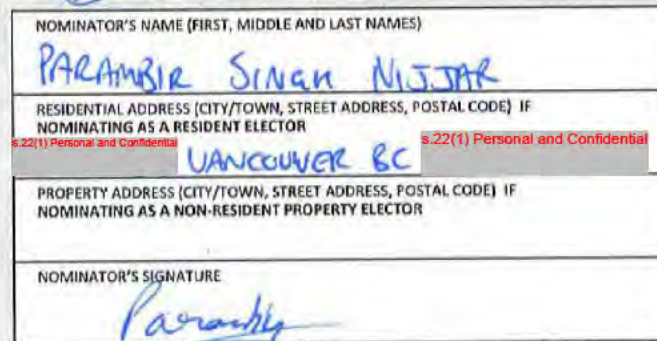 NOMINATOR'S NAME (FIRST, MIDDLE AND LAST NAMES)
PARAMBIR SINGH NIJJAR
RESIDENTIAL ADDRESS (CITY/TOWN, STREET ADDRESS, POSTAL CODE) IF
NOMINATING AS A RESIDENT ELECTOR
s.22(1) Personal and Confidential VANCOUVER BC s.22(1) Personal and Confidential
PROPERTY ADDRESS (CITY/TOWN, STREET ADDRESS, POSTAL CODE) IF
NOMINATING AS A NON-RESIDENT PROPERTY ELECTOR
NOMINATOR'S SIGNATURE